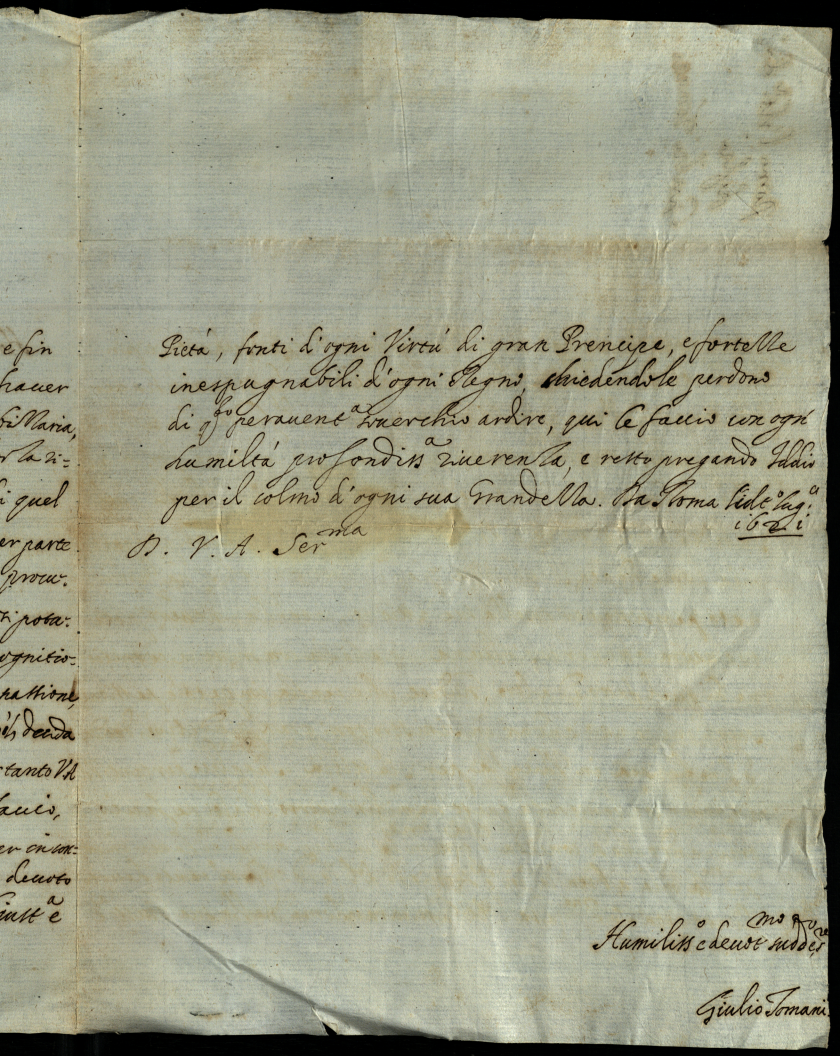 e fin
hauer
Maria,
r la ri=
i quel
er parte
procu.
pota:
ognitio=
passione,
deuda
tanto VA
faccio,
er in con:
deuoto
Giustª e
Pietá, fonti d'ogni Virtú di gran Prencipe, e fortezze
inespugnabili d'ogni Regno, chiedendole perdono
di qsto perauentª souerchio ardire, qui le faccio con ogni
humiltá profondissª riuerenza, e resto pregando Iddio
per il colmo d'ogni sua Grandezza. Da Roma li di lugº
1621
D. V. A. Serma
Humilissº e deuotmo serre
Giulio Tomani